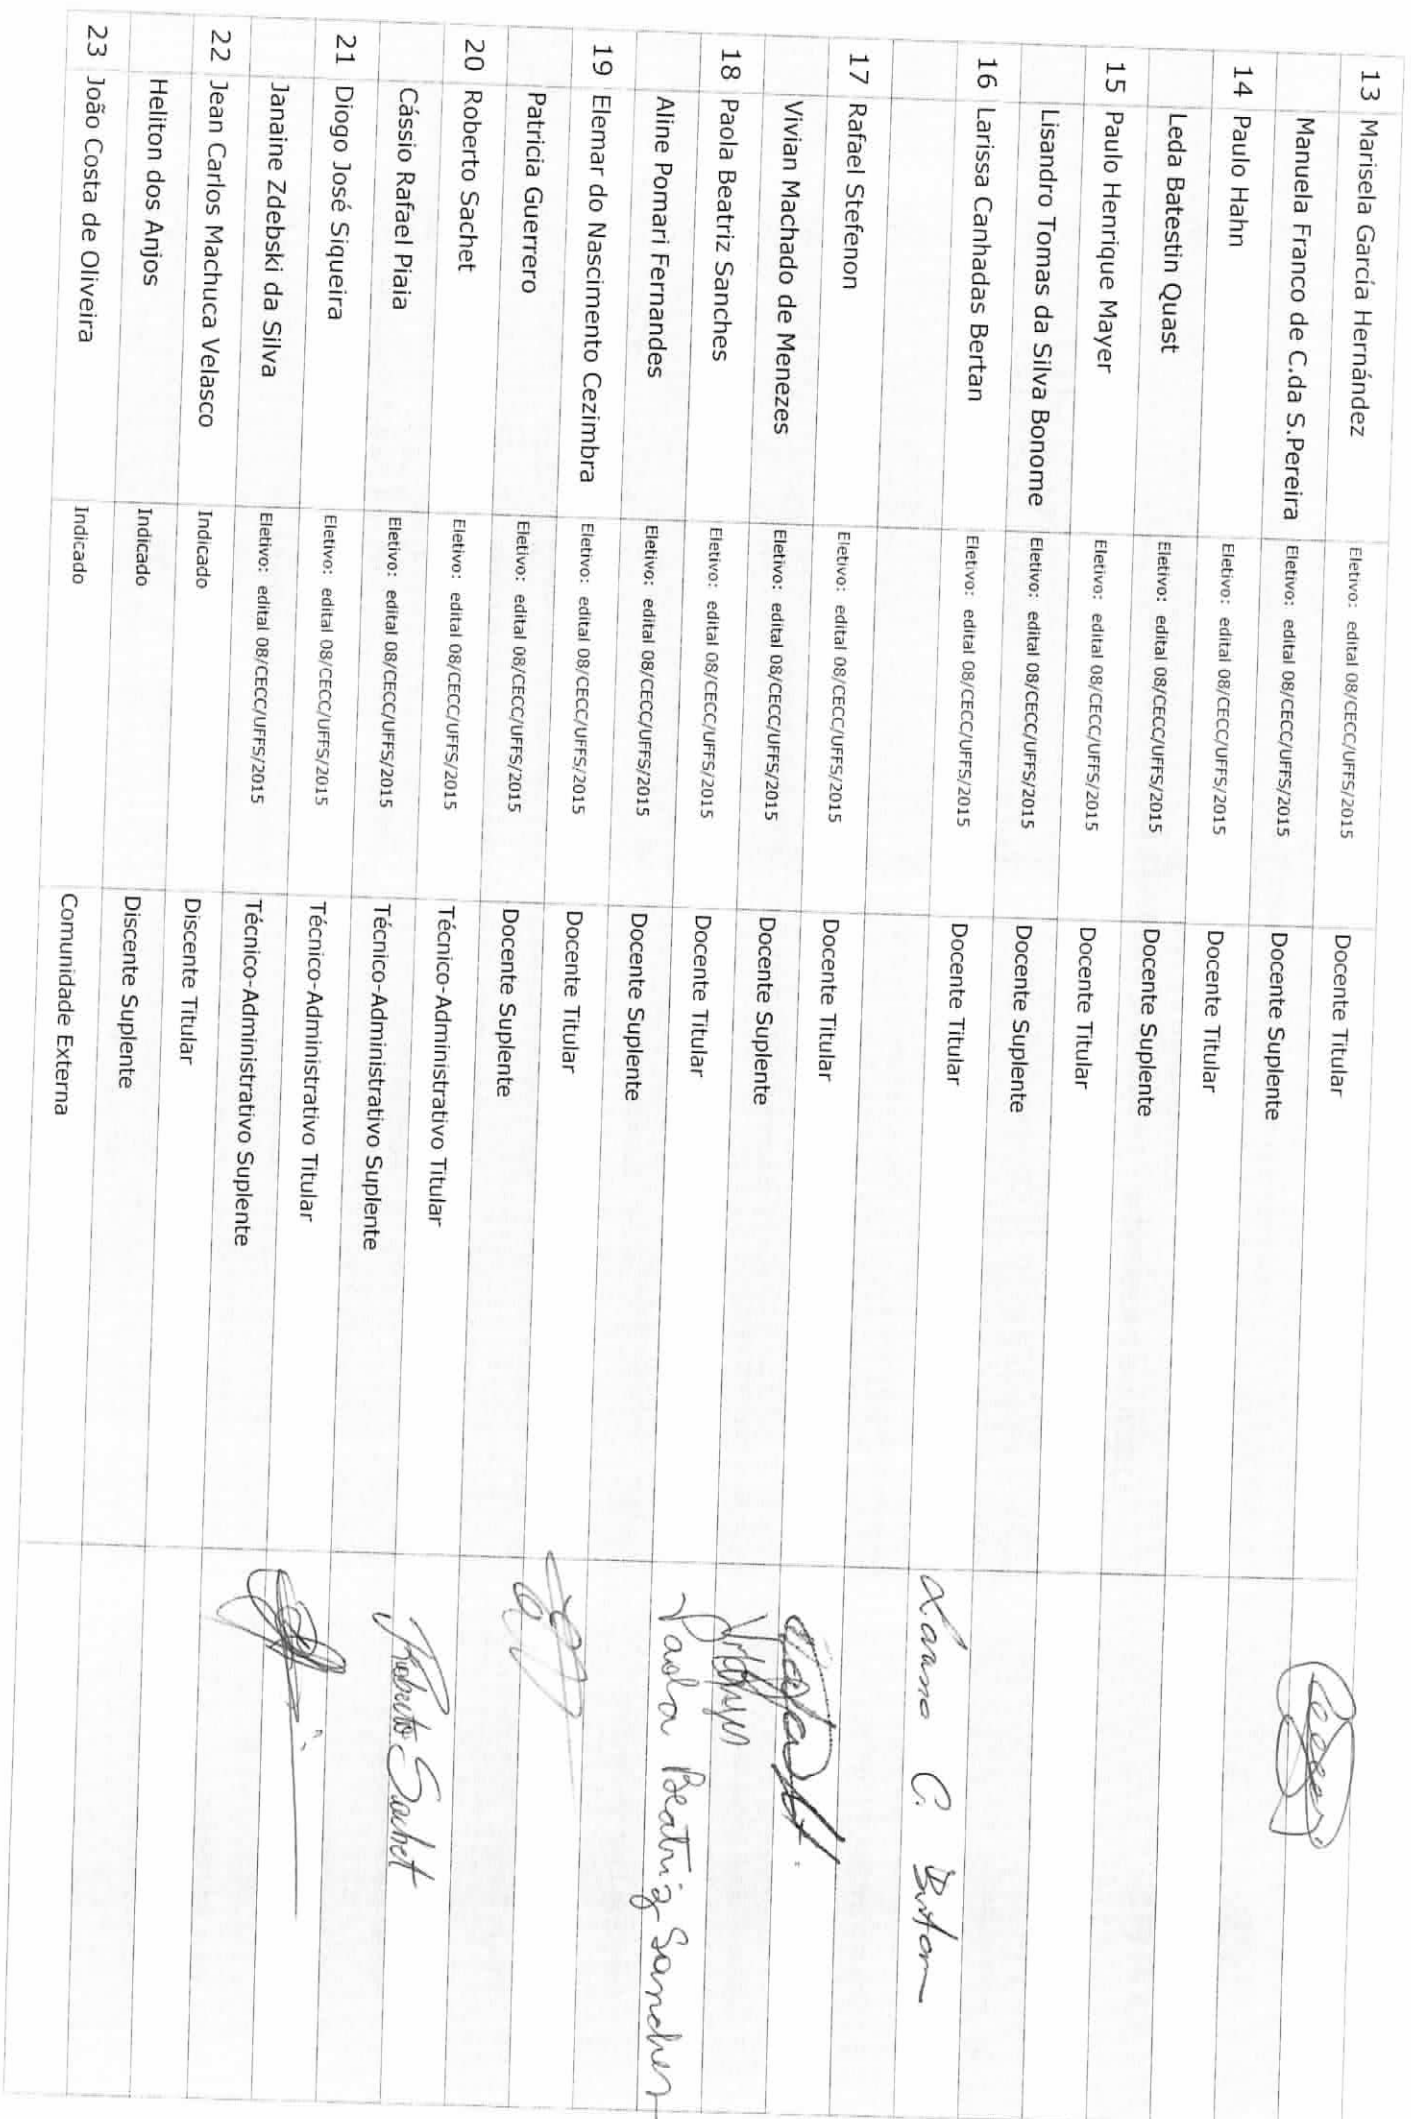 13 Marisela García Hernández Eletivo: edital 08/CECC/UFFS/2015 Docente Titular
Manuela Franco de C.da S.Pereira Eletivo: edital 08/CECC/UFFS/2015 Docente Suplente
14 Paulo Hahn Eletivo: edital 08/CECC/UFFS/2015 Docente Titular
Leda Batestin Quast Eletivo: edital 08/CECC/UFFS/2015 Docente Suplente
15 Paulo Henrique Mayer Eletivo: edital 08/CECC/UFFS/2015 Docente Titular
Lisandro Tomas da Silva Bonome Eletivo: edital 08/CECC/UFFS/2015 Docente Suplente
16 Larissa Canhadas Bertan Eletivo: edital 08/CECC/UFFS/2015 Docente Titular
C.
17 Rafael Stefenon Eletivo: edital 08/CECC/UFFS/2015 Docente Titular
Vivian Machado de Menezes Eletivo: edital 08/CECC/UFFS/2015 Docente Suplente
18 Paola Beatriz Sanches Eletivo: edital 08/CECC/UFFS/2015 Docente Titular Paola Beatriz Sanches
Aline Pomari Fernandes Eletivo: edital 08/CECC/UFFS/2015 Docente Suplente
19 Elemar do Nascimento Cezimbra Eletivo: edital 08/CECC/UFFS/2015 Docente Titular
Patricia Guerrero Eletivo: edital 08/CECC/UFFS/2015 Docente Suplente
20 Roberto Sachet Eletivo: edital 08/CECC/UFFS/2015 Técnico-Administrativo Titular Roberto Sachet
Cássio Rafael Piaia Eletivo: edital 08/CECC/UFFS/2015 Técnico-Administrativo Suplente
21 Diogo José Siqueira Eletivo: edital 08/CECC/UFFS/2015 Técnico-Administrativo Titular
Janaine Zdebski da Silva Eletivo: edital 08/CECC/UFFS/2015 Técnico-Administrativo Suplente
22 Jean Carlos Machuca Velasco Indicado Discente Titular
Heliton dos Anjos Indicado Discente Suplente
23 João Costa de Oliveira Indicado Comunidade Externa